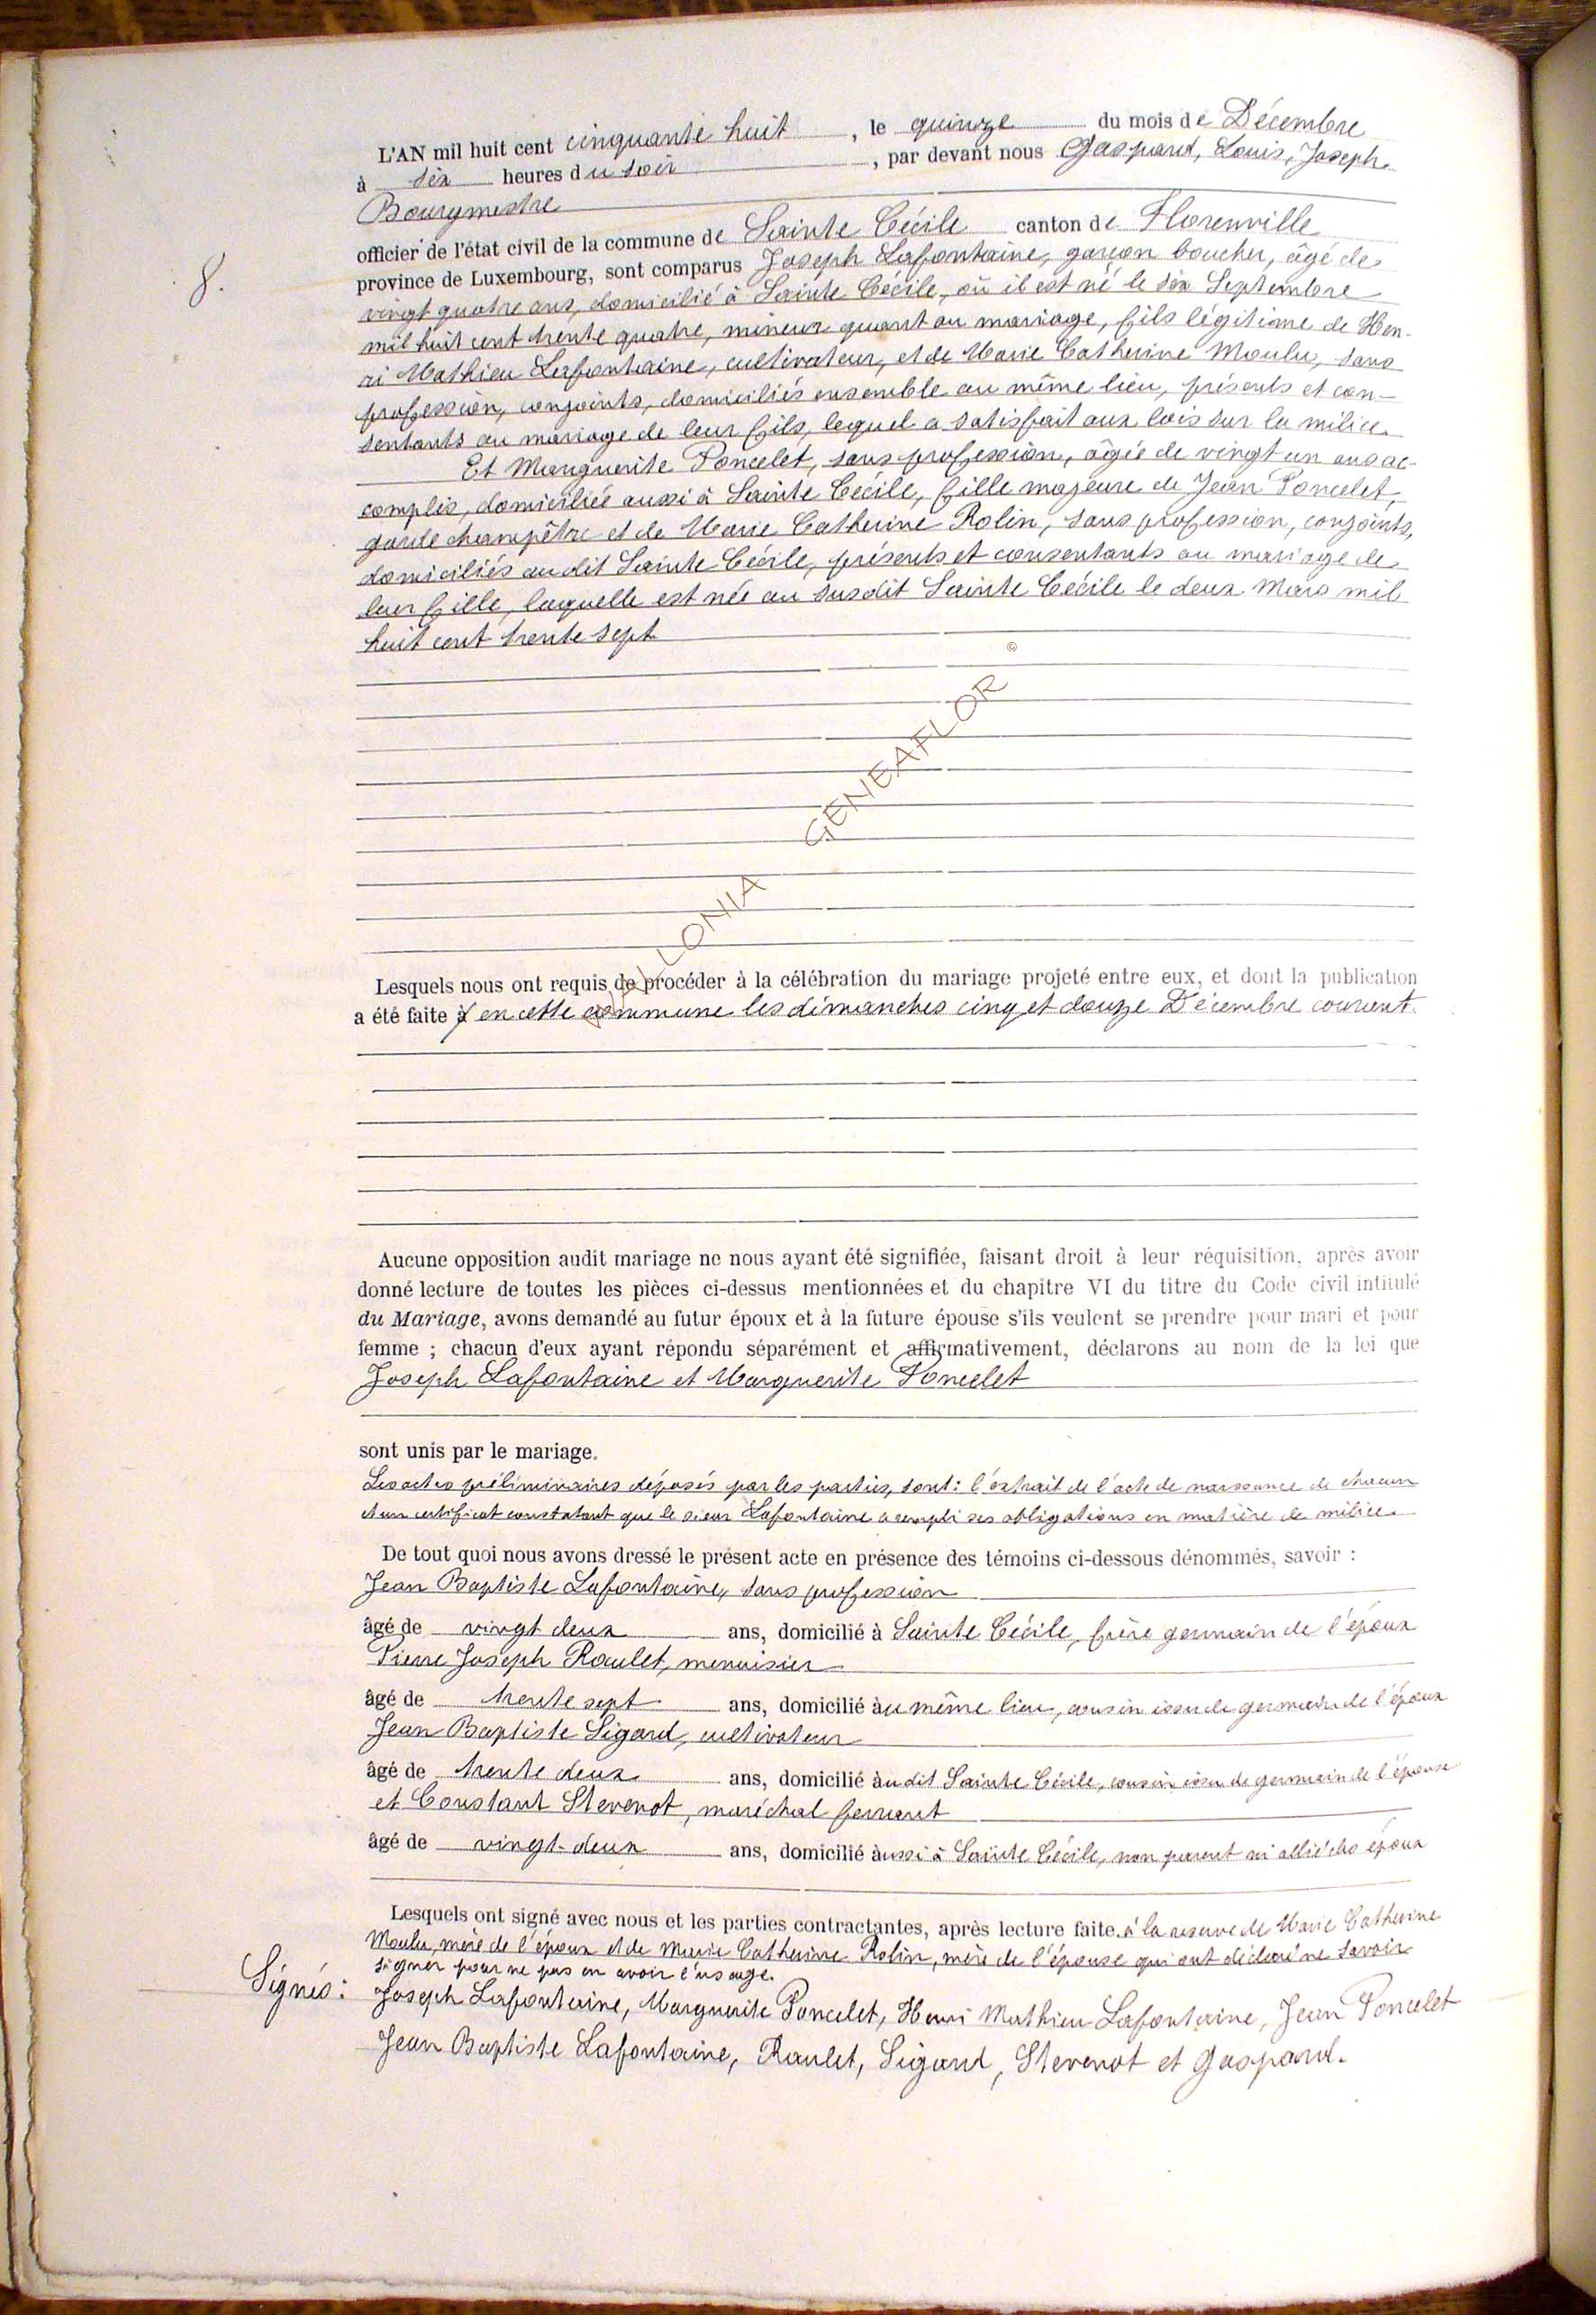 L'AN mil huit cent cinquante huit, le quinze du mois de Décembre
à six heures du soir, par devant nous Gaspard, Louis, Joseph
Bourgmestre
officier de l'état civil de la commune de Sainte Cécile canton de Florenville
8.
province de Luxembourg, sont comparus Joseph Lafontaine, garçon boucher, âgé de
vingt quatre ans, domicilié à Sainte Cécile, où il est né le six Septembre
mil huit cent trente quatre, mineur quant au mariage, fils légitime de Hen-
ri Mathieu Lafontaine, cultivateur, et de Marie Catherine Moulu, sans
profession, conjoints, domiciliés ensemble au même lieu, présents et con-
sentants au mariage de leur fils, lequel a satisfait aux lois sur la milice.
Et Marguerite Poncelet, sans profession, âgée de vingt un ans ac-
complis, domiciliée aussi à Sainte Cécile, fille majeure de Jean Poncelet,
garde champêtre et de Marie Catherine Rolin, sans profession, conjoints,
domiciliés au dit Sainte Cécile, présents et consentants au mariage de
leur fille, laquelle est née au susdit Sainte Cécile le deux Mars mil
huit cent trente sept
GENEAFLOR ©
Lesquels nous ont requis de procéder à la célébration du mariage projeté entre eux, et dont la publication
a été faite à en cette commune les dimanches cinq et douze Décembre courant.
Aucune opposition audit mariage ne nous ayant été signifiée, faisant droit à leur réquisition, après avoir
donné lecture de toutes les pièces ci-dessus mentionnées et du chapitre VI du titre du Code civil intitulé
du Mariage, avons demandé au futur époux et à la future épouse s'ils veulent se prendre pour mari et pour
femme ; chacun d'eux ayant répondu séparément et affirmativement, déclarons au nom de la loi que
Joseph Lafontaine et Marguerite Poncelet
sont unis par le mariage.
Les actes préliminaires déposés par les parties, sont : l'extrait de l'acte de naissance de chacun
et un certificat constatant que le sieur Lafontaine a rempli ses obligations en matière de milice.
De tout quoi nous avons dressé le présent acte en présence des témoins ci-dessous dénommés, savoir :
Jean Baptiste Lafontaine, sans profession
âgé de vingt deux ans, domicilié à Sainte Cécile, frère germain de l'époux
Pierre Joseph Raulet, menuisier
âgé de trente sept ans, domicilié au même lieu, cousin issu de germain de l'époux
Jean Baptiste Sigard, cultivateur
âgé de trente deux ans, domicilié audit Sainte Cécile, cousin issu de germain de l'épouse
et Constant Stevenot, maréchal ferrant
âgé de vingt-deux ans, domicilié aussi à Sainte Cécile, non parent ni allié des époux
Lesquels ont signé avec nous et les parties contractantes, après lecture faite. à la reserve de Marie Catherine
Moulu, mère de l'époux et de Marie Catherine Rolin, mère de l'épouse qui ont déclaré ne savoir
signer pour ne pas en avoir l'usage.
Signés : Joseph Lafontaine, Marguerite Poncelet, Henri Mathieu Lafontaine, Jean Poncelet
Jean Baptiste Lafontaine, Raulet, Sigard, Stevenot et Gaspard.